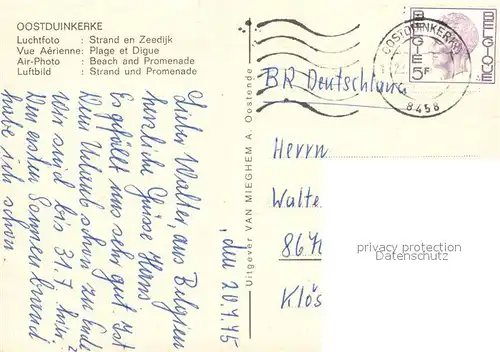 OOSTDUINKERKE
Luchtfoto : Strand en Zeedijk
Vue Aérienne: Plage et Digue
Air-Photo : Beach and Promenade
Luftbild : Strand und Promenade
Lieber Walter, aus Belgien
herzliche Grüsse Hans
Es gefällt uns sehr gut. Ist
Dein Urlaub schon zu Ende
wir sind bis 31.7 hier
Den ersten Sonnenbrand
habe ich schon.
, den 20.7.75
Uitgever VAN MIEGHEM A. Oostende
OOSTDUINKERKE
8458
BELGIE 5F BELGIQUE
BR Deutschland
Herrn
Walte
Klös
privacy protection
Datenschutz